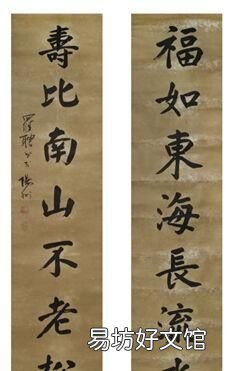 福如東海長流水
壽比南山不老松
易坊好文馆